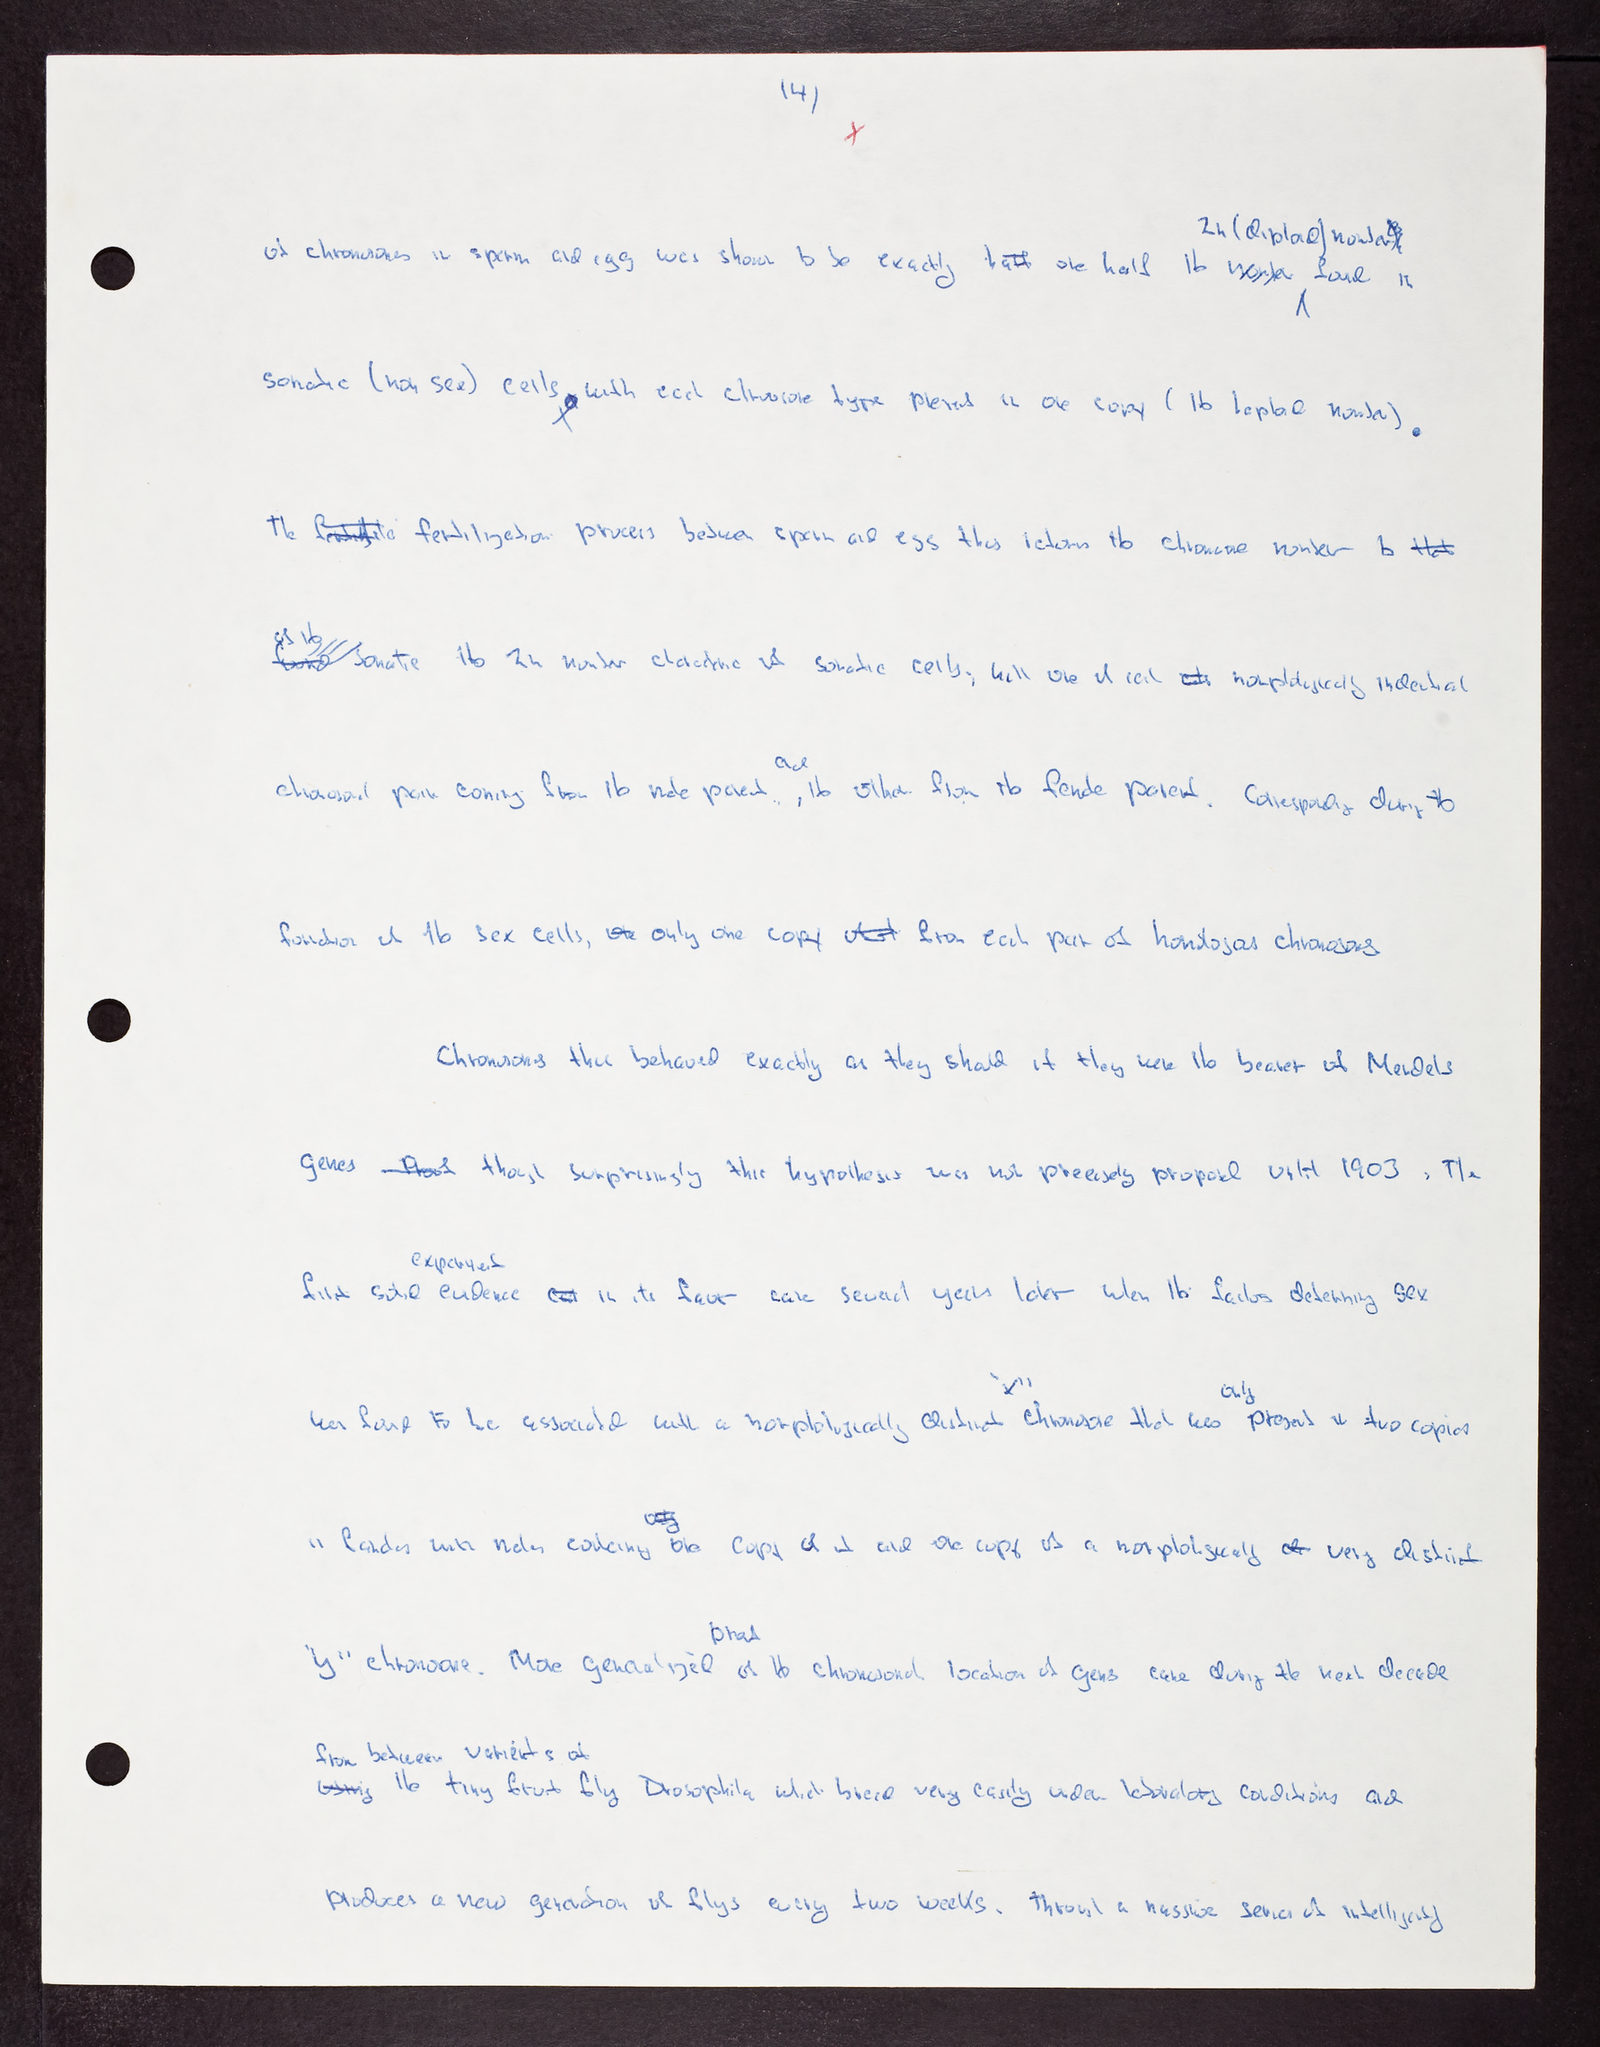 (4)
x
2n (diploid) number
of chromosomes in sperm and egg was shown to be exactly half one half the number found in
somatic (non sex) cells, with each chromosome type present in one copy (the haploid number).
The fertilization process between sperm and egg thus returns the chromosome number to that
as the
found somatic the 2n number characteristic of somatic cells, with one of each morphologically indentical
and
chromosomal pair coming from the male parent, the other from the female parent. Correspondingly during the
formation of the sex cells, one only one copy from each pair of homologous chromosomes
Chromosomes thus behaved exactly as they should if they were the bearer of Mendels
genes though surprisingly this hypothesis was not precisely proposed until 1903, The
experiment
first solid evidence in its favor came several years later when the factors determining sex
"x" only
was found to be associated with a morphologically distinct chromosome that was present in two copies
only
in females with males containing one copy of it and one copy of a morphologically very distinct
proof
"y" chromosome. More generalized of the chromosomal location of genes came during the next decade
from between varients of
using the tiny fruit fly Drosophila which breed very easily under laboratory conditions and
produces a new generation of flys every two weeks. Through a massive series of intelligently